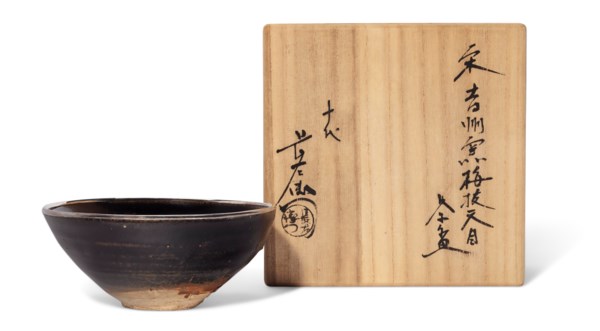 宋吉州窯梅枝天目
茶盌
十代